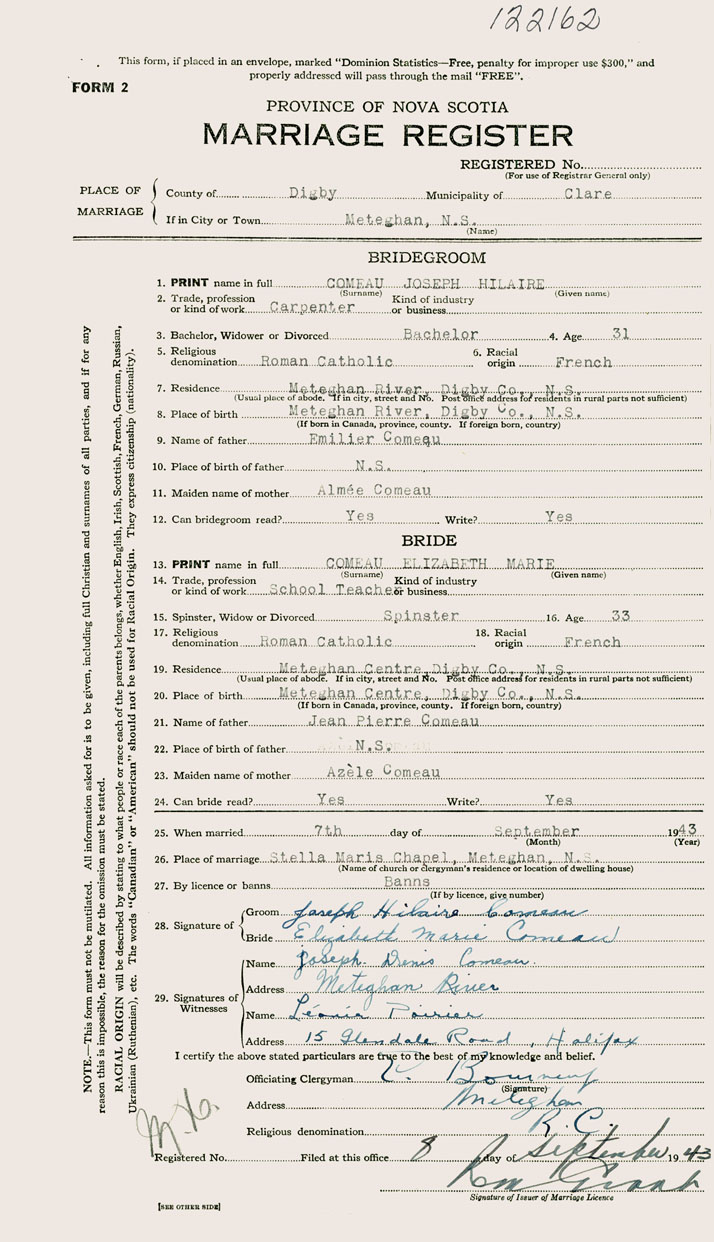 122162
This form, if placed in an envelope, marked "Dominion Statistics—Free, penalty for improper use $300," and
properly addressed will pass through the mail "FREE".
FORM 2
PROVINCE OF NOVA SCOTIA
MARRIAGE REGISTER
REGISTERED No.
(For use of Registrar General only)
PLACE OF MARRIAGE
County of Digby Municipality of Clare
If in City or Town Meteghan, N.S.
(Name)
BRIDEGROOM
1. PRINT name in full COMEAU JOSEPH HILAIRE
(Surname) (Given name)
2. Trade, profession or kind of work Carpenter Kind of industry or business
3. Bachelor, Widower or Divorced Bachelor 4. Age 31
5. Religious denomination Roman Catholic 6. Racial origin French
7. Residence Meteghan River, Digby Co., N.S.
(Usual place of abode. If in city, street and No. Post office address for residents in rural parts not sufficient)
8. Place of birth Meteghan River, Digby Co., N.S.
(If born in Canada, province, county. If foreign born, country)
9. Name of father Emilier Comeau
10. Place of birth of father N.S.
11. Maiden name of mother Almée Comeau
12. Can bridegroom read? Yes Write? Yes
BRIDE
13. PRINT name in full COMEAU ELIZABETH MARIE
(Surname) (Given name)
14. Trade, profession or kind of work School Teacher Kind of industry or business
15. Spinster, Widow or Divorced Spinster 16. Age 33
17. Religious denomination Roman Catholic 18. Racial origin French
19. Residence Meteghan Centre, Digby Co., N.S.
(Usual place of abode. If in city, street and No. Post office address for residents in rural parts not sufficient)
20. Place of birth Meteghan Centre, Digby Co., N.S.
(If born in Canada, province, county. If foreign born, country)
21. Name of father Jean Pierre Comeau
22. Place of birth of father N.S.
23. Maiden name of mother Azèle Comeau
24. Can bride read? Yes Write? Yes
25. When married 7th day of September 1943
(Month) (Year)
26. Place of marriage Stella Maris Chapel, Meteghan, N.S.
(Name of church or clergyman's residence or location of dwelling house)
27. By licence or banns Banns
(If by licence, give number)
28. Signature of
Groom Joseph Hilaire Comeau
Bride Elizabeth Marie Comeau
29. Signatures of Witnesses
Name Joseph Denis Comeau.
Address Meteghan River
Name Léonie Poirier
Address 15 Glendale Road, Halifax
I certify the above stated particulars are true to the best of my knowledge and belief.
Officiating Clergyman
(Signature)
Address Meteghan
Religious denomination R.C.
Registered No. Filed at this office 8 day of September 1943
Signature of Issuer of Marriage Licence
[SEE OTHER SIDE]
NOTE.—This form must not be mutilated. All information asked for is to be given, including full Christian and surnames of all parties, and if for any
reason this is impossible, the reason for the omission must be stated.
RACIAL ORIGIN will be described by stating to what people or race each of the parents belongs, whether English, Irish, Scottish, French, German, Russian,
Ukrainian (Ruthenian), etc. The words "Canadian" or "American" should not be used for Racial Origin. They express citizenship (nationality).